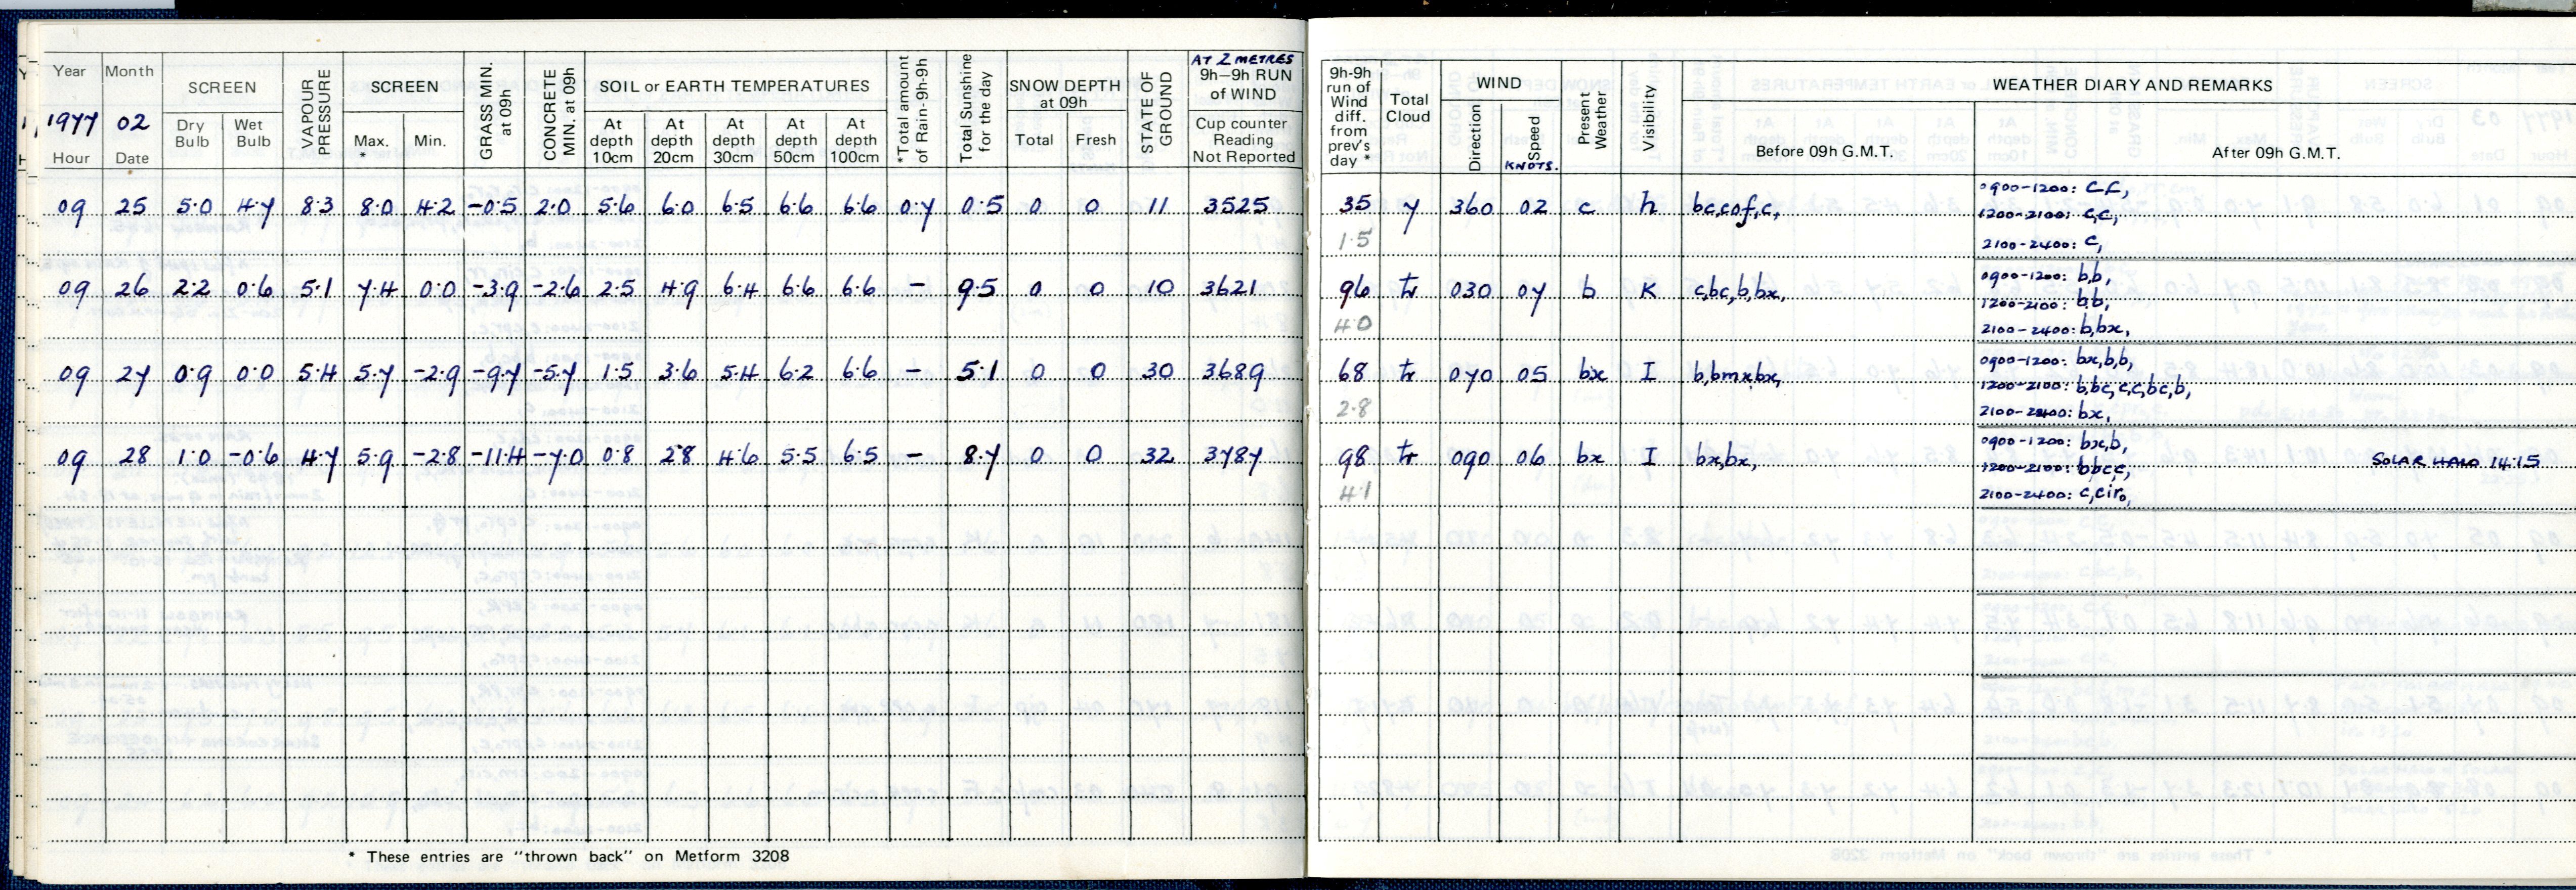 Year Month SCREEN VAPOUR PRESSURE SCREEN GRASS MIN. at 09h CONCRETE MIN. at 09h SOIL or EARTH TEMPERATURES *Total amount of Rain-9h-9h Total Sunshine for the day SNOW DEPTH at 09h STATE OF GROUND AT 2 METRES 9h–9h RUN of WIND
1977 02 Dry Bulb Wet Bulb Max. * Min. At depth 10cm At depth 20cm At depth 30cm At depth 50cm At depth 100cm Total Fresh Cup counter Reading Not Reported
Hour Date
09 25 5.0 4.7 8.3 8.0 4.2 -0.5 2.0 5.6 6.0 6.5 6.6 6.6 0.7 0.5 0 0 11 3525
09 26 2.2 0.6 5.1 7.4 0.0 -3.9 -2.6 2.5 4.9 6.4 6.6 6.6 – 9.5 0 0 10 3621
09 27 0.9 0.0 5.4 5.7 -2.9 -9.7 -5.7 1.5 3.6 5.4 6.2 6.6 – 5.1 0 0 30 3689
09 28 1.0 -0.6 4.7 5.9 -2.8 -11.4 -7.0 0.8 2.8 4.6 5.5 6.5 – 8.7 0 0 32 3787
* These entries are "thrown back" on Metform 3208
9h-9h run of Wind diff. from prev's day * Total Cloud WIND Present Weather Visibility WEATHER DIARY AND REMARKS
Direction Speed KNOTS. Before 09h G.M.T. After 09h G.M.T.
35 7 360 02 c h bc,cof,c,
1.5
0900-1200: cf,
1200-2100: c,c,
2100-2400: c,
96 tr 030 07 b K c,bc,b,bx,
4.0
0900-1200: b,b,
1200-2100: b,b,
2100-2400: b,bx,
68 tr 070 05 bx I b,bmx,bx,
2.8
0900-1200: bx,b,b,
1200-2100: b,bc,c,c,bc,b,
2100-2400: bx,
98 tr 090 06 bx I bx,bx,
4.1
0900-1200: bx,b,
1200-2100: bbcc, SOLAR HALO 14.15
2100-2400: c,ciro,